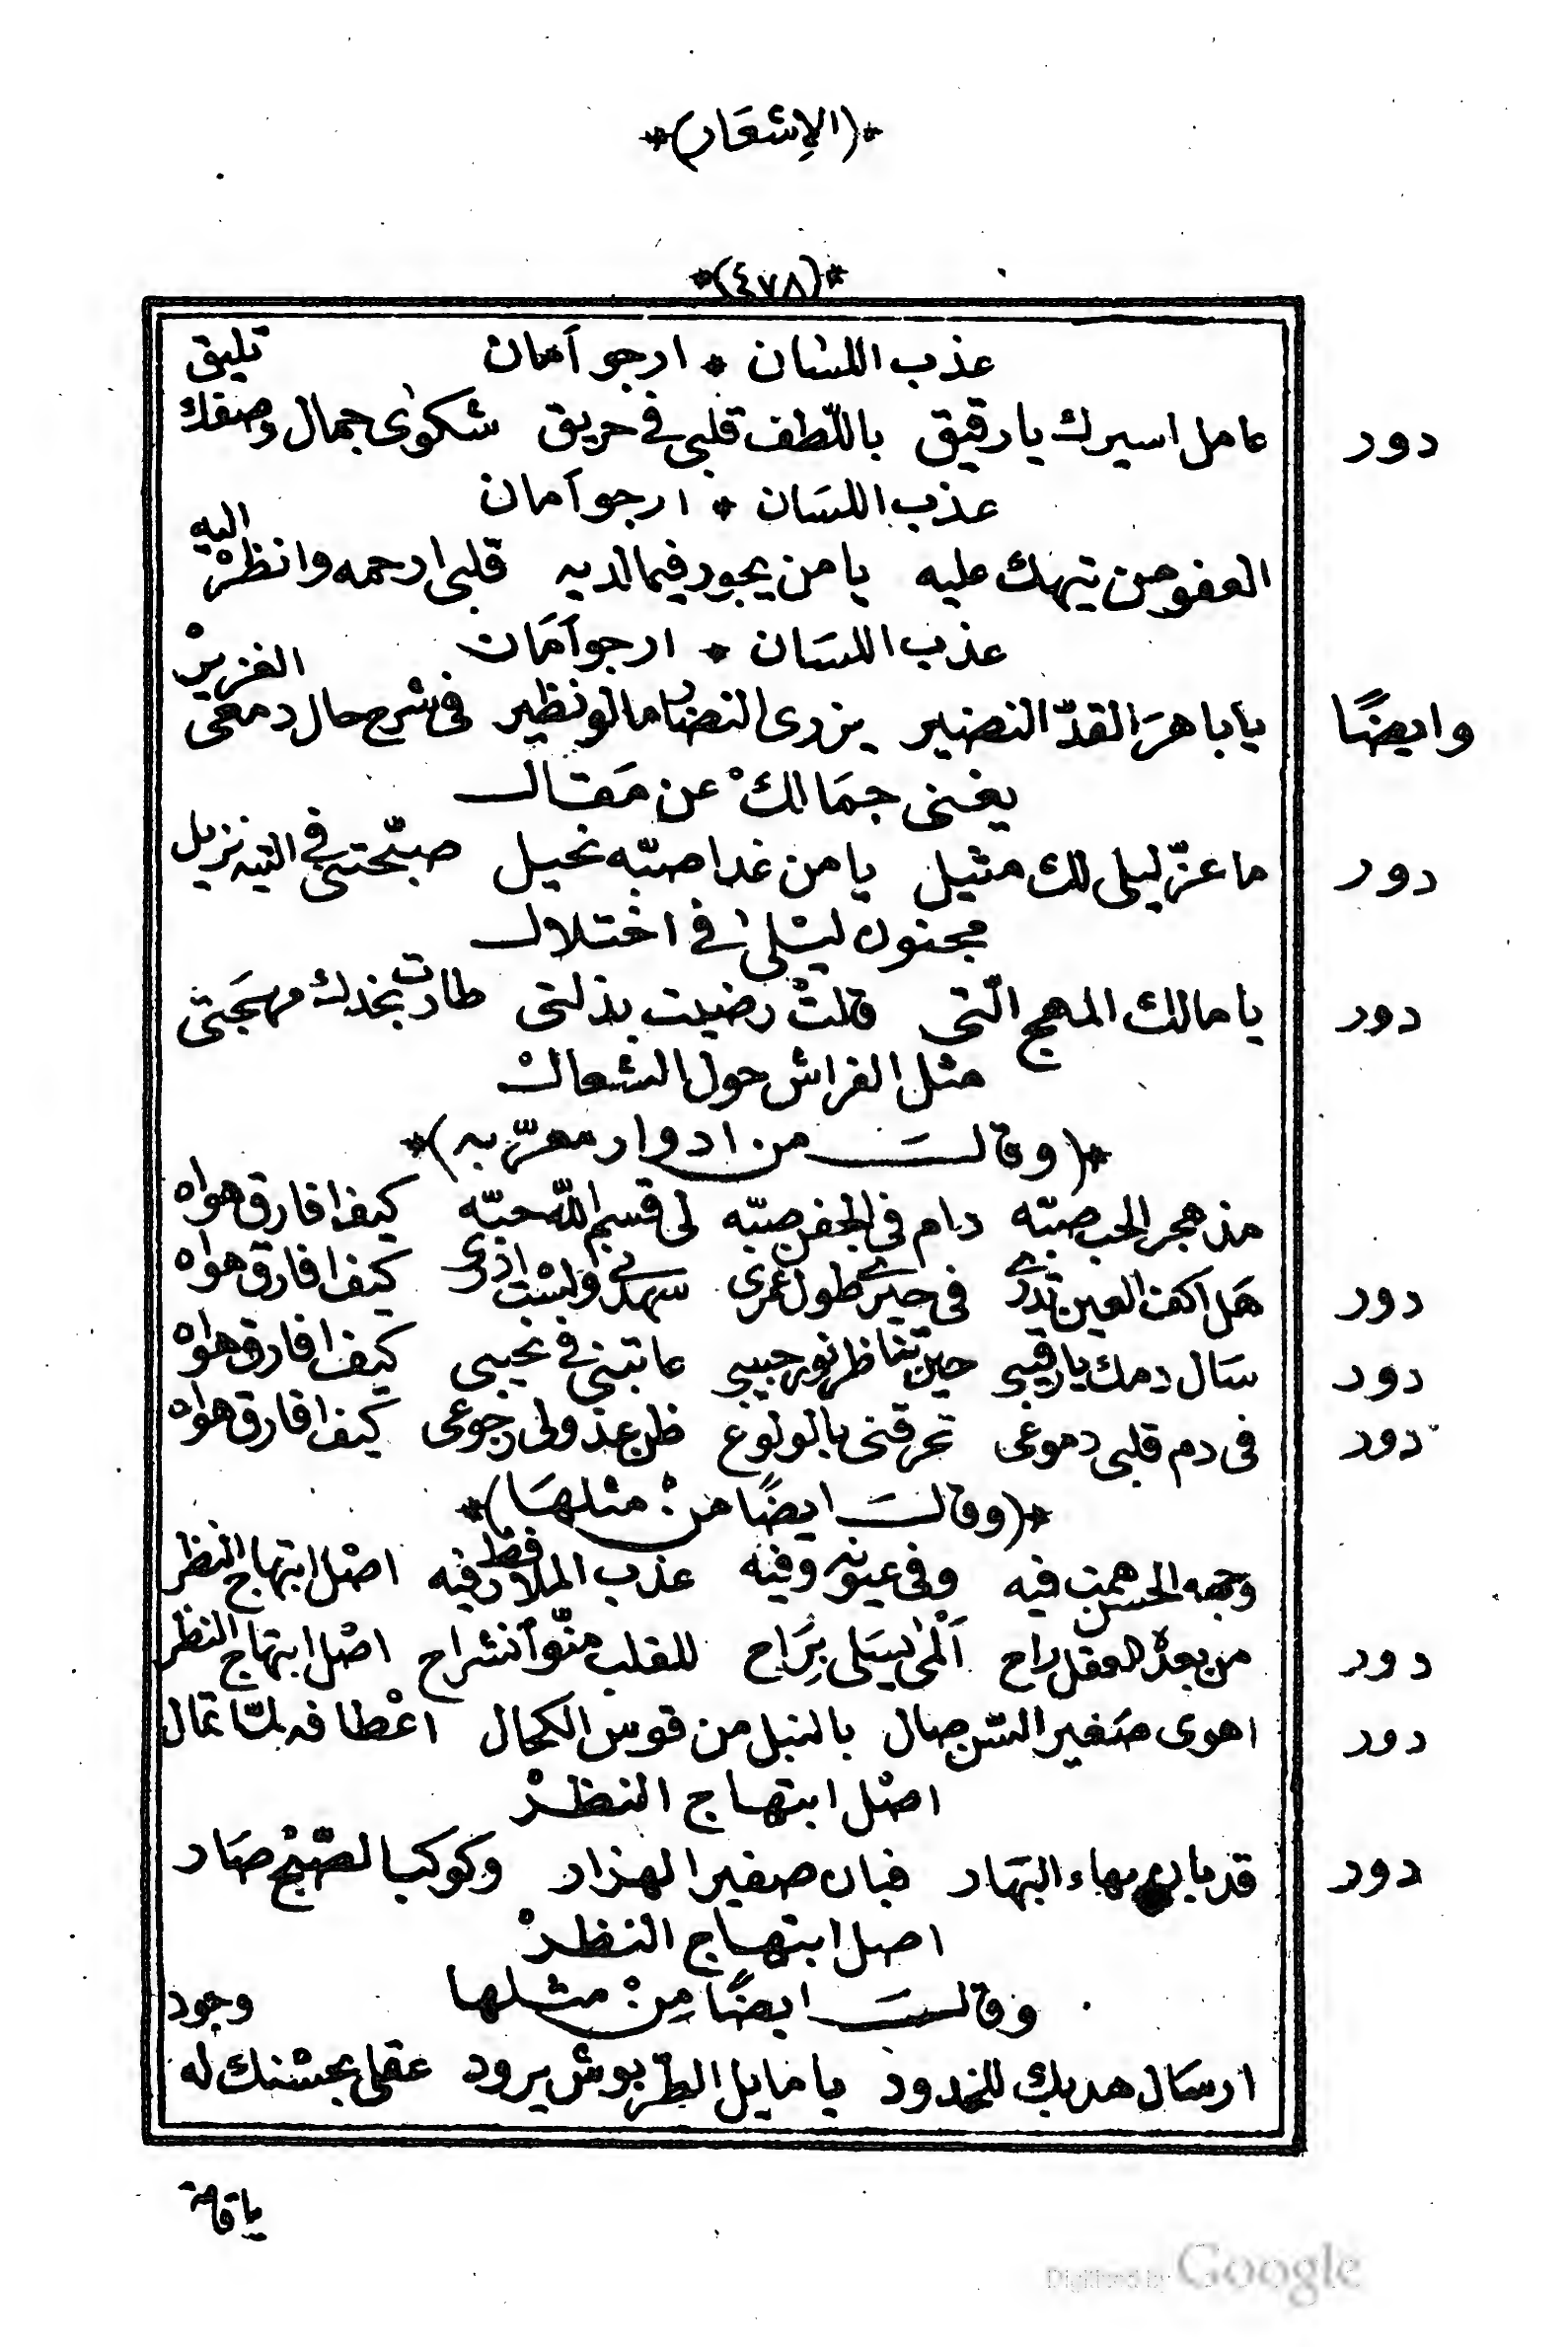 *(الاِشعَار)*
*(٤٧٨)*
عذب اللسَان * ارجو اَمان
دور عامل اسيرك يا رقيق باللّطف قلبى فى حريق شكوٰى جمال وصفك تليق
عذب اللسَان * ارجو اَمان
العفو من تيهك عليه يا من يجود فيما لديه قلبى ارحمه وانظرْ اليه
عذب اللسَان * ارجو اَمَان
وايضًا يا باهرَ القدّ النضير يزرى النضا ما لو نظير فى شرح حال دمعى الغزيرْ
يغنى جمَالكْ عن مَقال
دور ما عزّ ليلى لك مثيل يا من غدا صبّه نحيل صبّحتنى فى التيه نزيل
مجنون ليْلىٰ فى اخْتلال
دور يا مالك المهج الّتى قلتْ رضيت بذلتى طارت بخدك مهجَتى
مثل الفراش حول الشعالْ
*(وقالتَ من ادوار معرّبه)*
مذ هجر الحب صبّه دام فى الجفن صبّه لى قسم اللّه حبّه كيف افارق هواه
دور هَل اكف العين تدرى فى حيرَتى طول عمرى سهدنى ولسْت ادرى كيف افارق هواه
دور سَال دمك يا رقيبى حين تناظر نور حبيبى عاتبنى فى نحيبى كيف افارق هواه
دور فى دم قلبى دموعى تحرقنى بالولوع ظن عذولى رجوعى كيف افارق هواه
*(وقالتَ ايضًا منْ مثلهَا)*
وجهه الحسن همت فيه وفى عيونه وفيه عذب الملا فقط رفيه اصْل ابتهاج النظر
دور من بعدْ العقل راح اَلْمىٰ ليسَلى بِرَاح للقلب منّو اَنشراح اصْل ابتهاج النظر
دور اهوى صَغير السّن صال بالنبل من قوس الكحال اعْطافه لمّا تمال
اصْل ابتهاج النظرْ
دور قد بان بهاء البهَار فبان صفير الهزار وكوكب الصّبْح صَار
اصل ابتهاج النظرْ
وقالتَ ايضًا مِنْ مثلها
ارسَال هدبك للخدود يا مايل الطّربوش يرود عقلى بحسْنك له وجود
يا قامة
Digitized by Google